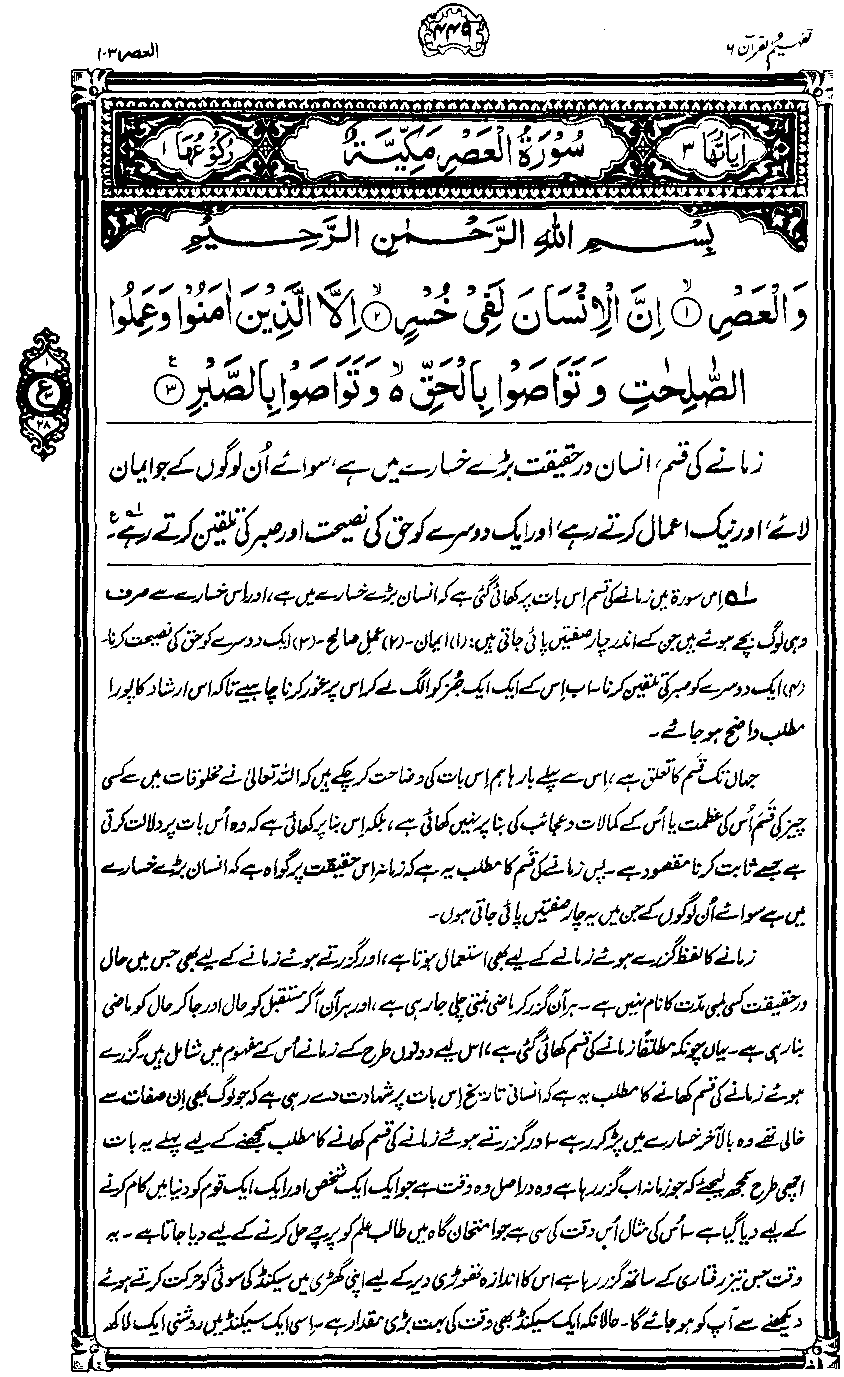 تفہیم القرآن ۶
۴۴۹
العصر ۱۰۳
اٰیَاتُهَا ۳
سُوْرَةُ الْعَصْرِ مَكِّيَّةٌ
رُكُوْعُهَا ۱
بِسْمِ اللهِ الرَّحْمٰنِ الرَّحِيْمِ
وَالْعَصْرِ ۙ﴿۱﴾ اِنَّ الْاِنْسَانَ لَفِيْ خُسْرٍ ۙ﴿۲﴾ اِلَّا الَّذِيْنَ اٰمَنُوْا وَعَمِلُوا
الصّٰلِحٰتِ وَتَوَاصَوْا بِالْحَقِّ ۙ۬ وَتَوَاصَوْا بِالصَّبْرِ ﴿۳﴾ ع
۱
ع
۲۸
زمانے کی قسم، انسان درحقیقت بڑے خسارے میں ہے، سوائے اُن لوگوں کے جو ایمان
لائے، اور نیک اعمال کرتے رہے، اور ایک دوسرے کو حق کی نصیحت اور صبر کی تلقین کرتے رہے۔ ؎۱ ع
؎۱ اِس سورۃ میں زمانے کی قسم اِس بات پر کھائی گئی ہے کہ انسان بڑے خسارے میں ہے، اور اِس خسارے سے صرف
وہی لوگ بچے ہوئے ہیں جن کے اندر چار صفتیں پائی جاتی ہیں: (۱) ایمان۔ (۲) عمل صالح۔ (۳) ایک دوسرے کو حق کی نصیحت کرنا۔
(۴) ایک دوسرے کو صبر کی تلقین کرنا۔ اب اِس کے ایک ایک جُز کو الگ لے کر اس پر غور کرنا چاہیے تاکہ اس ارشاد کا پورا
مطلب واضح ہو جائے۔
جہاں تک قَسم کا تعلق ہے، اِس سے پہلے بارہا ہم اِس بات کی وضاحت کر چکے ہیں کہ اللہ تعالیٰ نے مخلوقات میں سے کسی
چیز کی قَسم اُس کی عظمت یا اُس کے کمالات و عجائب کی بنا پر نہیں کھائی ہے، بلکہ اِس بنا پر کھائی ہے کہ وہ اُس بات پر دلالت کرتی
ہے جسے ثابت کرنا مقصود ہے۔ پس زمانے کی قَسم کا مطلب یہ ہے کہ زمانہ اِس حقیقت پر گواہ ہے کہ انسان بڑے خسارے
میں ہے سوائے اُن لوگوں کے جن میں یہ چار صفتیں پائی جاتی ہوں۔
زمانے کا لفظ گزرے ہوئے زمانے کے لیے بھی استعمال ہوتا ہے، اور گزرتے ہوئے زمانے کے لیے بھی جس میں حال
درحقیقت کسی لمبی مدّت کا نام نہیں ہے۔ ہر آن گزر کر ماضی بنتی چلی جا رہی ہے، اور ہر آن آکر مستقبل کو حال اور جا کر حال کو ماضی
بنا رہی ہے۔ یہاں چونکہ مطلقًا زمانے کی قسم کھائی گئی ہے، اس لیے دونوں طرح کے زمانے اُس کے مفہوم میں شامل ہیں۔ گزرے
ہوئے زمانے کی قسم کھانے کا مطلب یہ ہے کہ انسانی تاریخ اِس بات پر شہادت دے رہی ہے کہ جو لوگ بھی اِن صفات سے
خالی تھے وہ بالآخر خسارے میں پڑ کر رہے۔ اور گزرتے ہوئے زمانے کی قسم کھانے کا مطلب سمجھنے کے لیے پہلے یہ بات
اچھی طرح سمجھ لیجئے کہ جو زمانہ اب گزر رہا ہے وہ دراصل وہ وقت ہے جو ایک ایک شخص اور ایک ایک قوم کو دنیا میں کام کرنے
کے لیے دیا گیا ہے۔ اُس کی مثال اُس وقت کی سی ہے جو امتحان گاہ میں طالب علم کو پرچے حل کرنے کے لیے دیا جاتا ہے۔ یہ
وقت جس تیز رفتاری کے ساتھ گزر رہا ہے اس کا اندازہ تھوڑی دیر کے لیے اپنی گھڑی میں سیکنڈ کی سوئی کو حرکت کرتے ہوئے
دیکھنے سے آپ کو ہو جائے گا۔ حالانکہ ایک سیکنڈ بھی وقت کی بہت بڑی مقدار ہے۔ اِسی ایک سیکنڈ میں روشنی ایک لاکھ